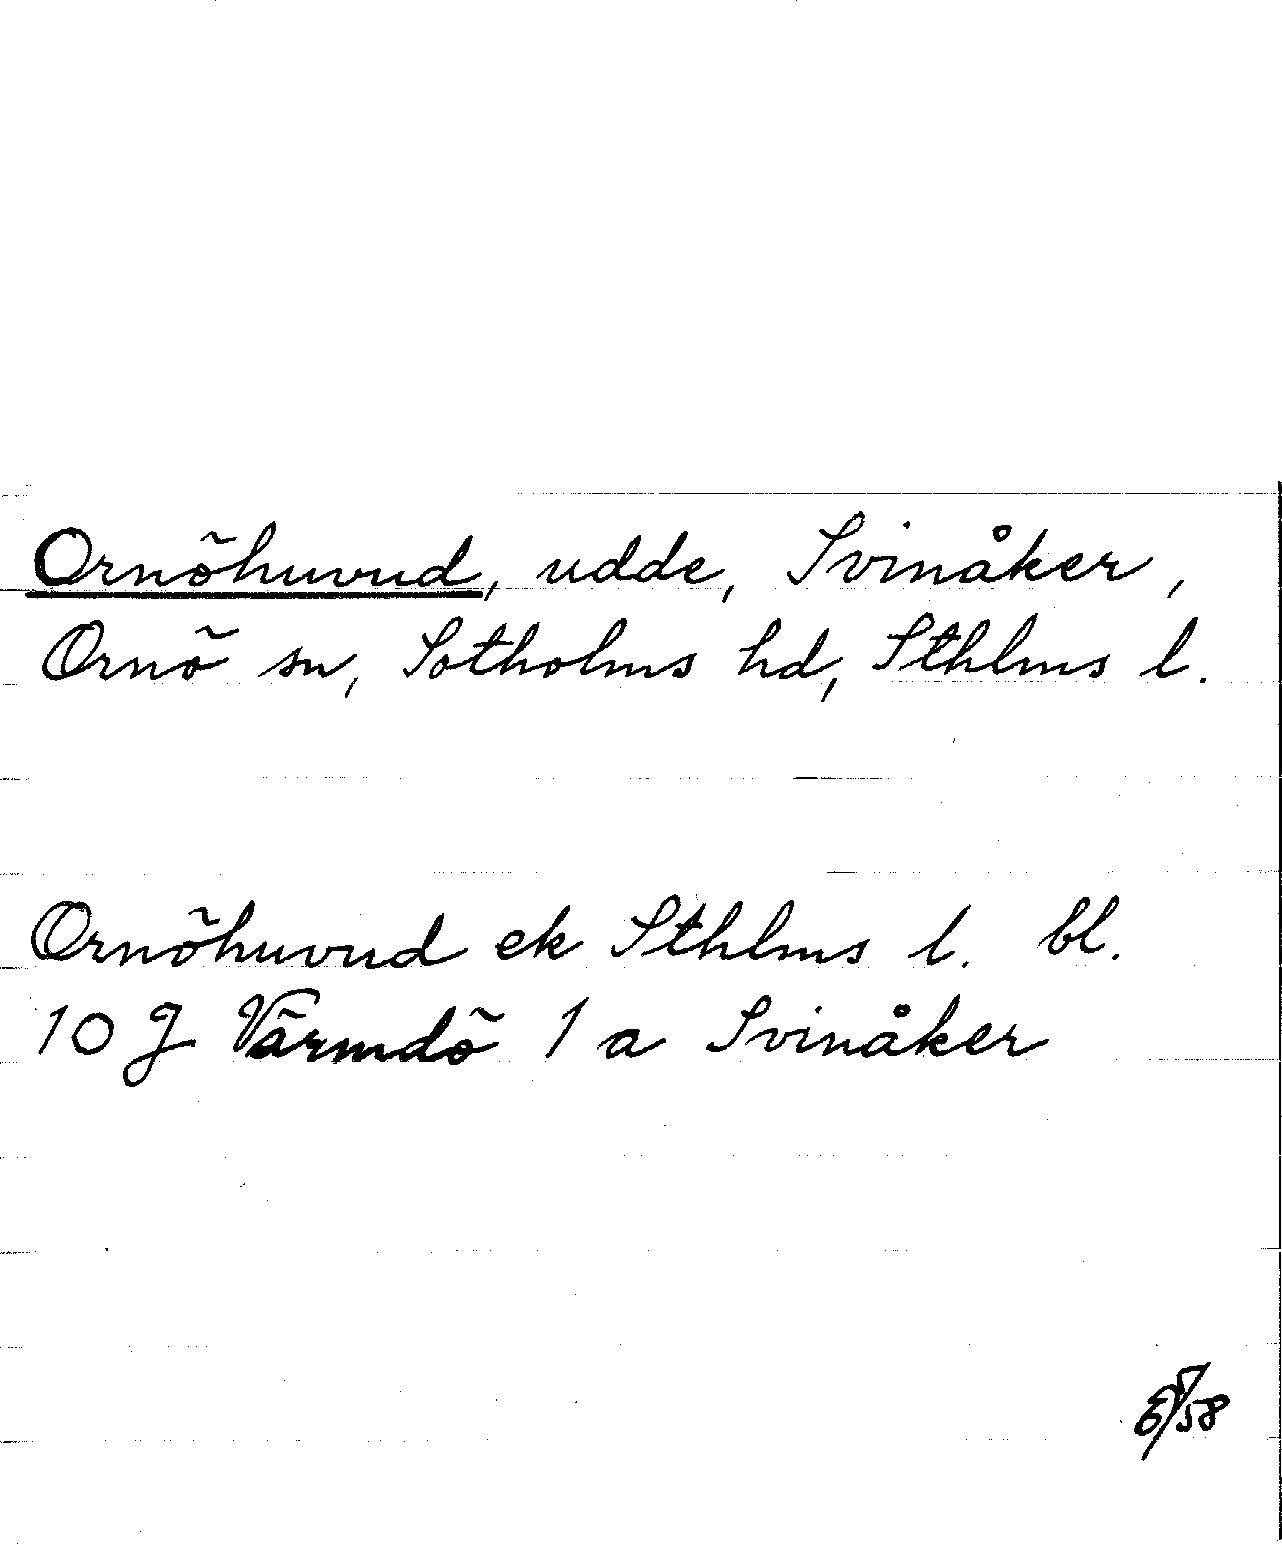 Ornöhuvud, udde, Svinåker,
Ornö sn, Sotholms hd, Sthlms l.
Ornöhuvud ek Sthlms l. bl.
10 J Värmdö 1 a Svinåker